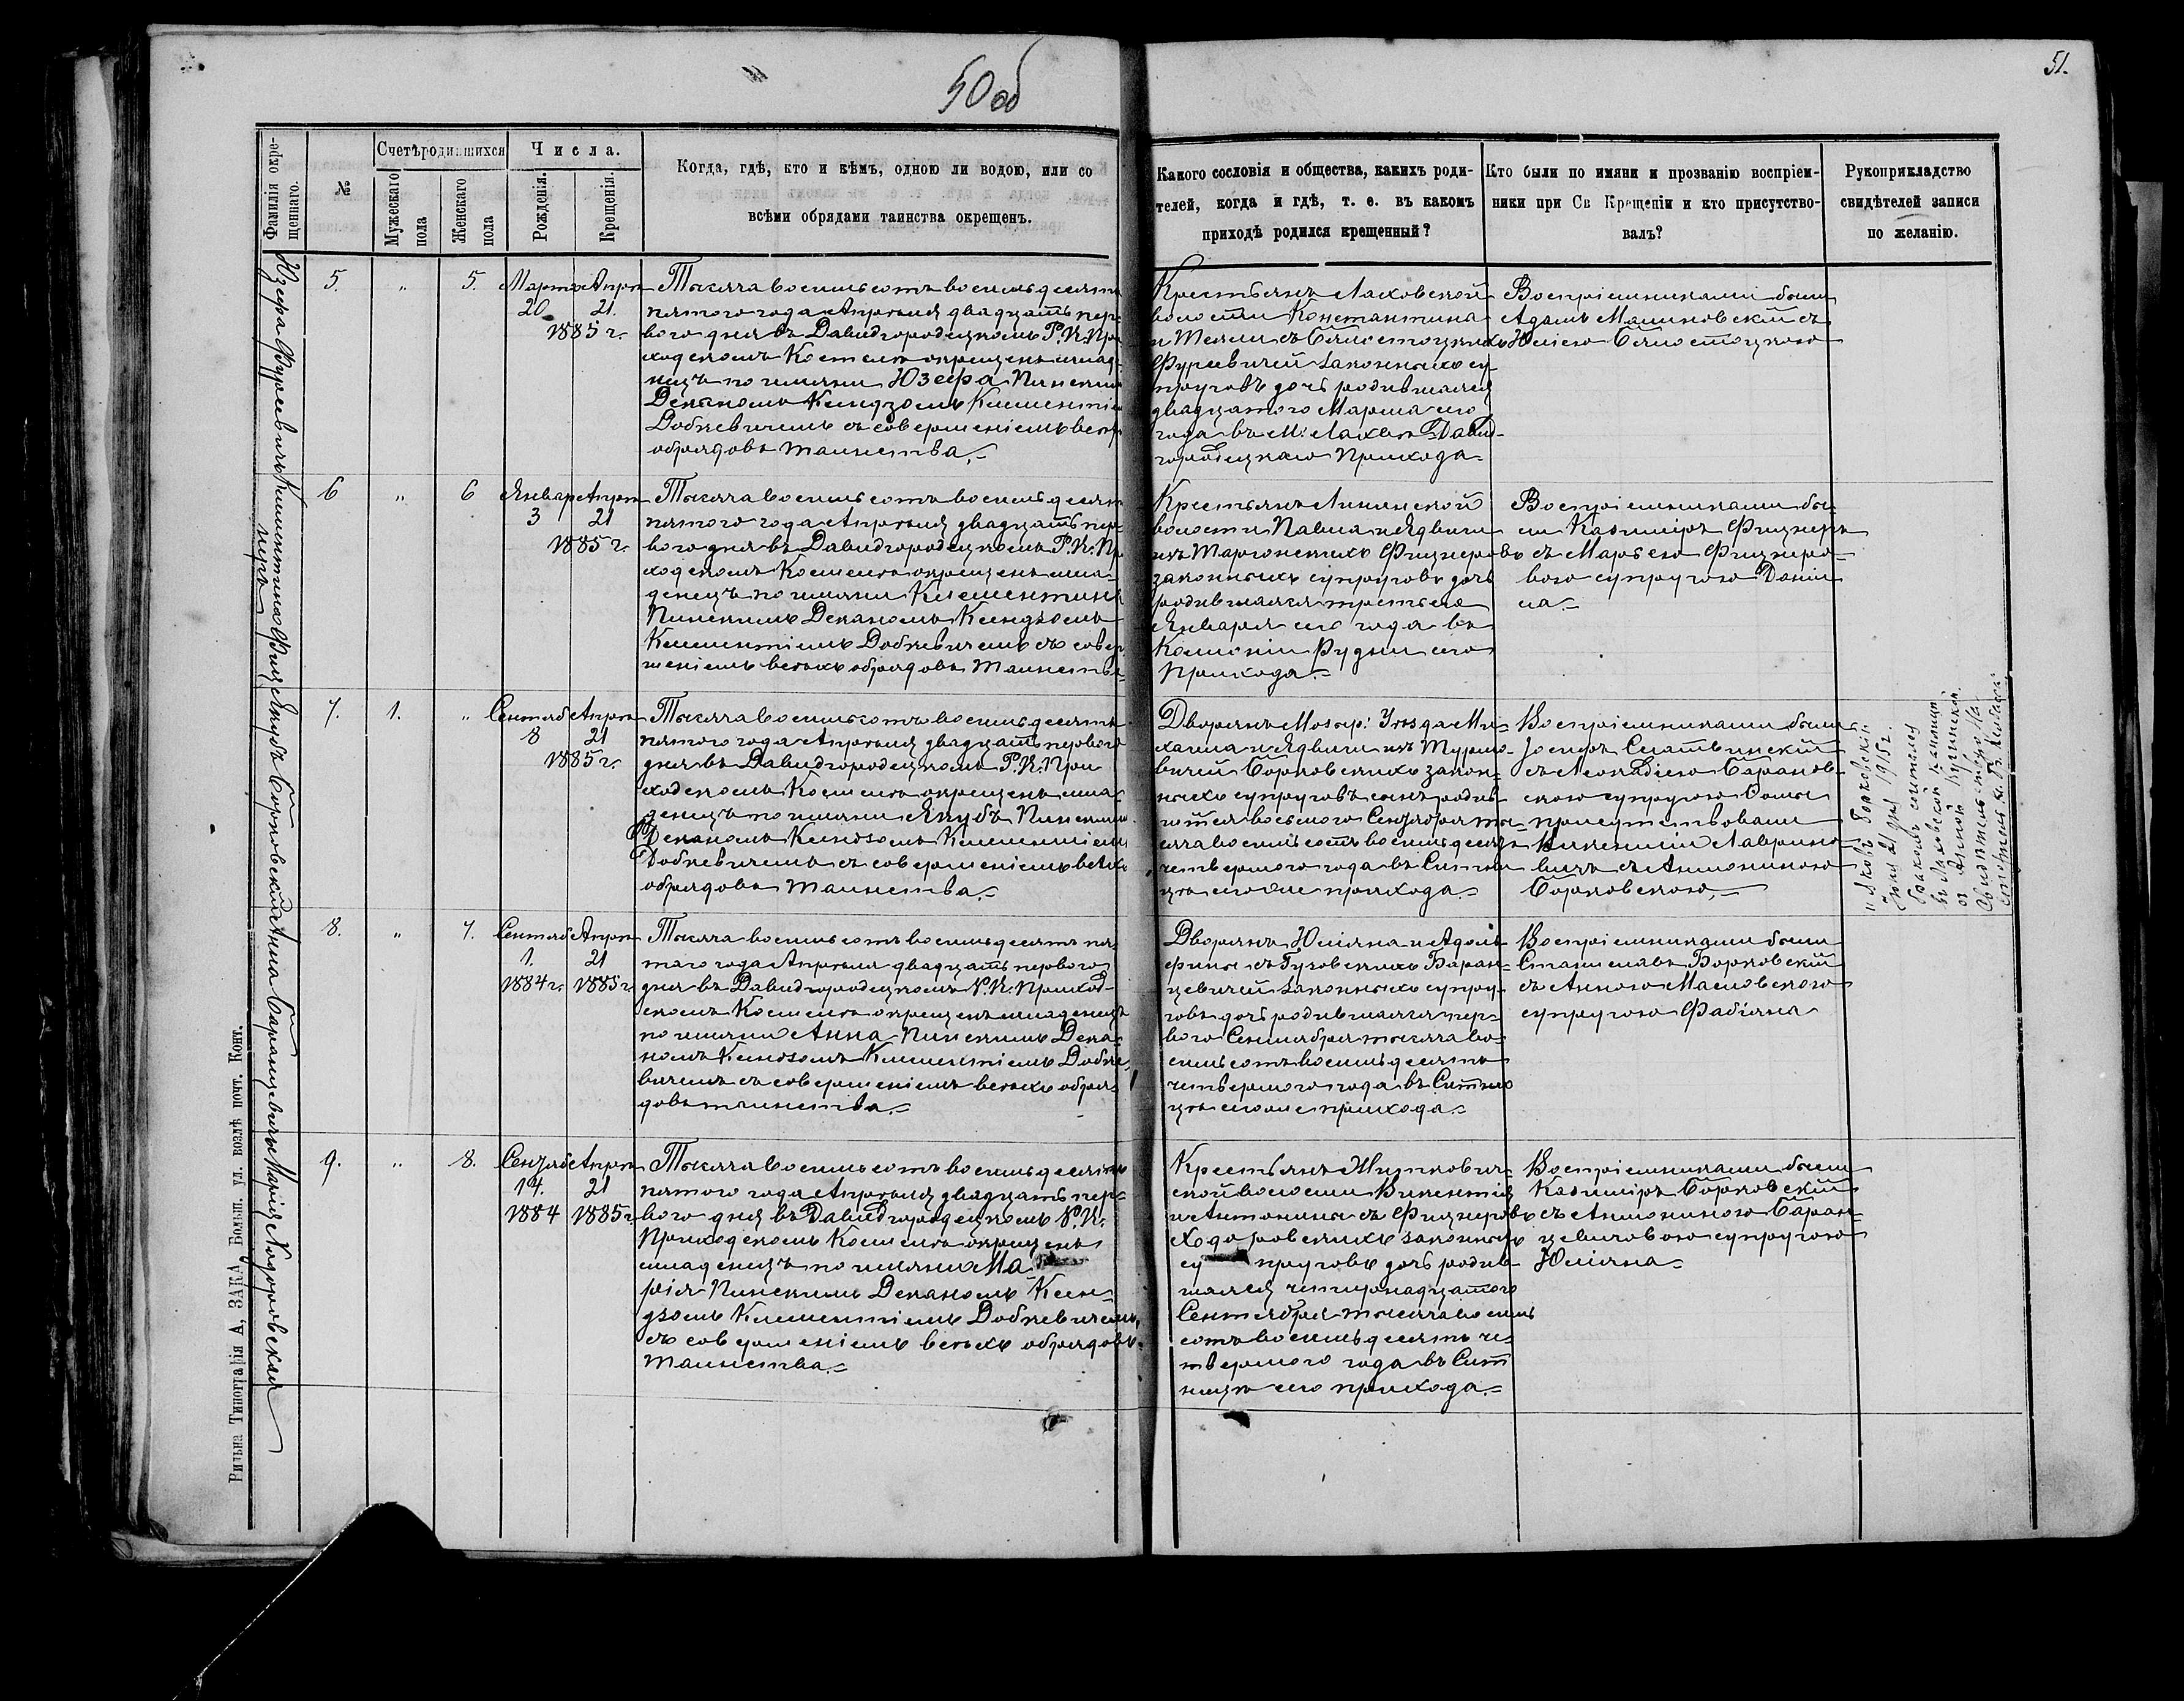 50 об
51.
Фамилія окре-
щеннаго.
№
Счетъ родившихся
Мужескаго
пола
Женскаго
пола
Числа.
Рожденія.
Крещенія.
Когда, гдѣ, кто и кѣмъ, одною ли водою, или со
всѣми обрядами таинства окрещенъ.
Какого сословія и общества, какихъ роди-
телей, когда и гдѣ, т. е. въ какомъ
приходѣ родился крещенный?
Кто были по имяни и прозванію воспріем-
ники при Св Крещеніи и кто присутство-
валъ?
Рукоприкладство
свидѣтелей записи
по желанію.
Юзефа Фурсевичъ
5.
"
5.
Марта Апрѣл
20. 21.
1885 г.
Тысяча восемьсотъ восемьдесятъ
пятого года Апрѣля двадцать пер-
вого дня въ Давидгородецкомъ Р. К. При
ходскомъ Костелѣ окрещенъ млад-
нецъ по имяни Юзефа Пинскимъ
Деканомъ Ксендзомъ Климентіем
Добкевичемъ съ совершеніемъ всѣхъ
обрядовъ таинства.=
Крестьянъ Лаховской
волости Константина
и Теклі съ Бѣлостоцкихъ
Фурсевичей законныхъ су-
пруговъ дочь родившаяся
двадцатого Марта сего
года въ М. Лахвѣ Давид-
городецкаго Прихода=
Воспріемниками были
Адамъ Малиновскій съ
Юліею Бѣлостоцкою
Климентина Фиц
неръ
6
"
6
Январ Апрѣл
3 21
1885 г.
Тысяча восемьсотъ восемьдесят
пятого года Апрѣля двадцать пер-
вого дня въ Давидгородецкомъ Р. К. При
ходскомъ Костелѣ окрещенъ мла-
денецъ по имяни Климентина
Пинскимъ Деканомъ Ксендзомъ
Климентіемъ Добкевичемъ съ совер
шеніемъ всѣхъ обрядовъ таинства=
Крестьянъ Ленинской
волости Павла и Ядвиги
изъ Таргонскихъ Фицнеровъ
законныхъ супруговъ дочь
родившаяся третьего
Января сего года въ
Колоніи Рудни сего
Прихода.=
Воспріемниками бы-
ли Казиміръ Фицнеръ
съ Марьею Фицнеро-
вою супругою Даніи
ла.=
Якубъ Борковскій
7.
1.
"
Сентяб Апрѣл
8 21
1885 г.
Тысяча восемьсотъ восемьдесятъ
пятого года Апрѣля двадцать первого
дня въ Давидгородецкомъ Р. К. При
ходскомъ Костелѣ окрещенъ мла-
денецъ по имяни Якубъ Пинскимъ
Деканомъ Ксендзомъ Климентіемъ
Добкевичемъ съ совершеніемъ всѣхъ
обрядовъ таинства.=
Дворянъ Мозыр: Уѣзда Ми-
хаила и Ядвиги изъ Турцо-
вичей Борковскихъ закон-
ныхъ супруговъ сынъ родив-
шійся восьмого Сентября ты-
сяча восемьсотъ восемьдесят
четвертого года въ Ситни
цѣ сегоже прихода.=
Воспріемниками были
Іосифъ Слатвинскій
съ Леокадіею Баранов-
скою супругою Фомы
присутствовали
Викентій Лаврино-
вичъ съ Антониною
Борковскою.=
"Яковъ Борковскій
21 дня 1915 г.
бракомъ сочетался
въ Лаховской каплицѣ
Анна Баранцевичъ
8.
"
7.
Сентяб Апрѣл
1. 21
1884 г. 1885 г.
Тысяча восемьсотъ восемьдесятъ пя-
таго года Апрѣля двадцать первого
дня въ Давидгородецкомъ Р. К. Приход-
скомъ Костелѣ окрещенъ младенецъ
по имяни Анна Пинскимъ Дека-
номъ Ксендзомъ Климентіемъ Добке-
вичемъ съ совершеніемъ всѣхъ обря-
довъ таинства.=
Дворянъ Юліяна и Адоль-
фины съ Гузовскихъ Баран-
цевичей законныхъ супру-
говъ дочь родившаяся пер-
вого Сентября тысяча во-
семьсотъ восемьдесятъ
четвертого года въ Ситни
цѣ сегоже прихода.=
Воспріемниками были
Станиславъ Борковскій
съ Анною Масловскою
супругою Фабіяна
Марія Ходоровская
9.
"
8.
Сентяб Апрѣл
14. 21
1884 1885 г.
Тысяча восемьсотъ восемьдесятъ
пятого года Апрѣля двадцать пер-
вого дня въ Давидгородецкомъ Р. К.
Приходскомъ Костелѣ окрещенъ
младенецъ по имяни Ма
рія Пинскимъ Деканомъ Ксен-
дзомъ Климентіемъ Добкевичемъ
съ совершеніемъ всѣхъ обрядовъ
таинства.=
Крестьянъ Житкович-
ской волости Викентія
и Антонины съ Фицнеровъ
Ходоровскихъ законныхъ
су пруговъ дочь родив-
шаяся четырнадцатого
Сентября тысяча восемь
сотъ восемьдесятъ че-
твертого года въ Сит
ницѣ сего прихода.=
Воспріемниками были
Казиміръ Борковскій
съ Антониною Баран-
цевичовою супругою
Юліяна=
Типографія А, ЗАКА Больш. ул. возлѣ почт. Конт.